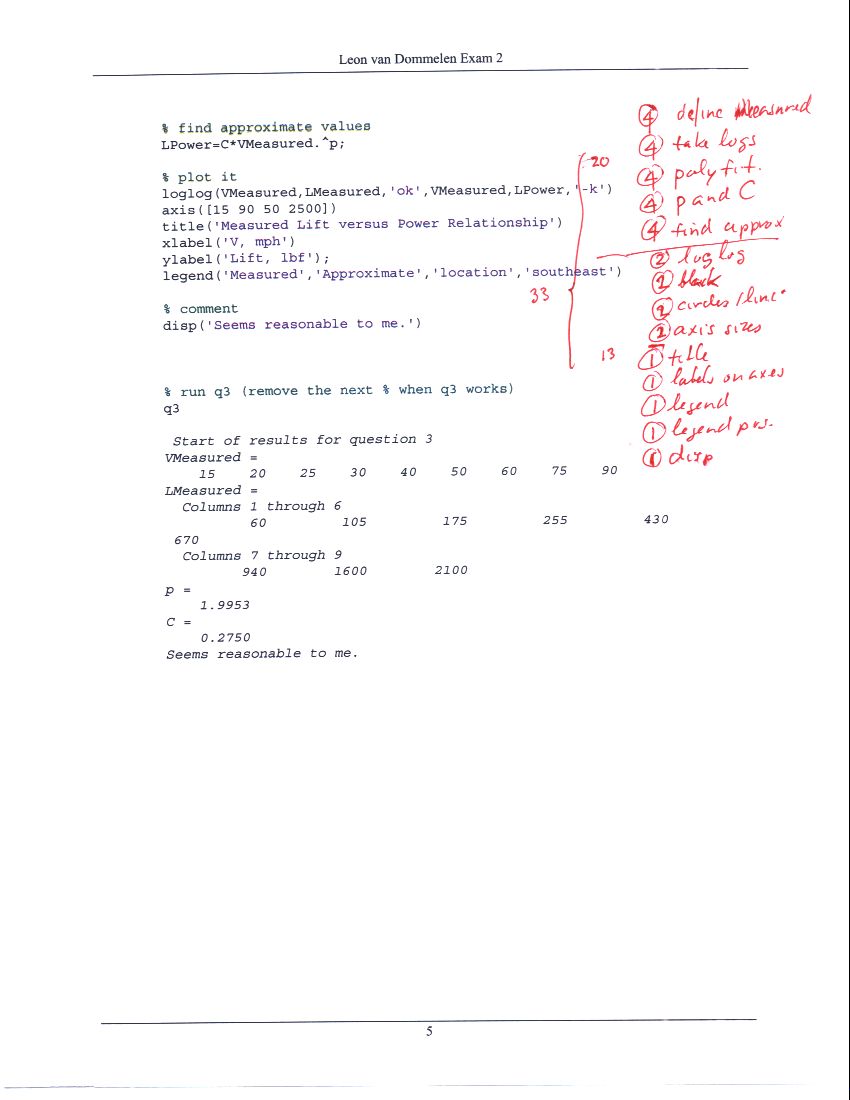 Leon van Dommelen Exam 2
% find approximate values
LPower=C*VMeasured.^p;
% plot it
loglog(VMeasured,LMeasured,'ok',VMeasured,LPower,'-k')
axis([15 90 50 2500])
title('Measured Lift versus Power Relationship')
xlabel('V, mph')
ylabel('Lift, lbf');
legend('Measured','Approximate','location','southeast')
% comment
disp('Seems reasonable to me.')
% run q3 (remove the next % when q3 works)
q3
Start of results for question 3
VMeasured =
15 20 25 30 40 50 60 75 90
LMeasured =
Columns 1 through 6
60 105 175 255 430
670
Columns 7 through 9
940 1600 2100
p =
1.9953
C =
0.2750
Seems reasonable to me.
4 define Measured
4 take logs
20
4 polyfit.
4 p and C
4 find approx
2 loglog
2 black
33
2 circles/line
2 axis sizes
13
1 title
1 labels on axes
1 legend
1 legend pos.
1 disp
5